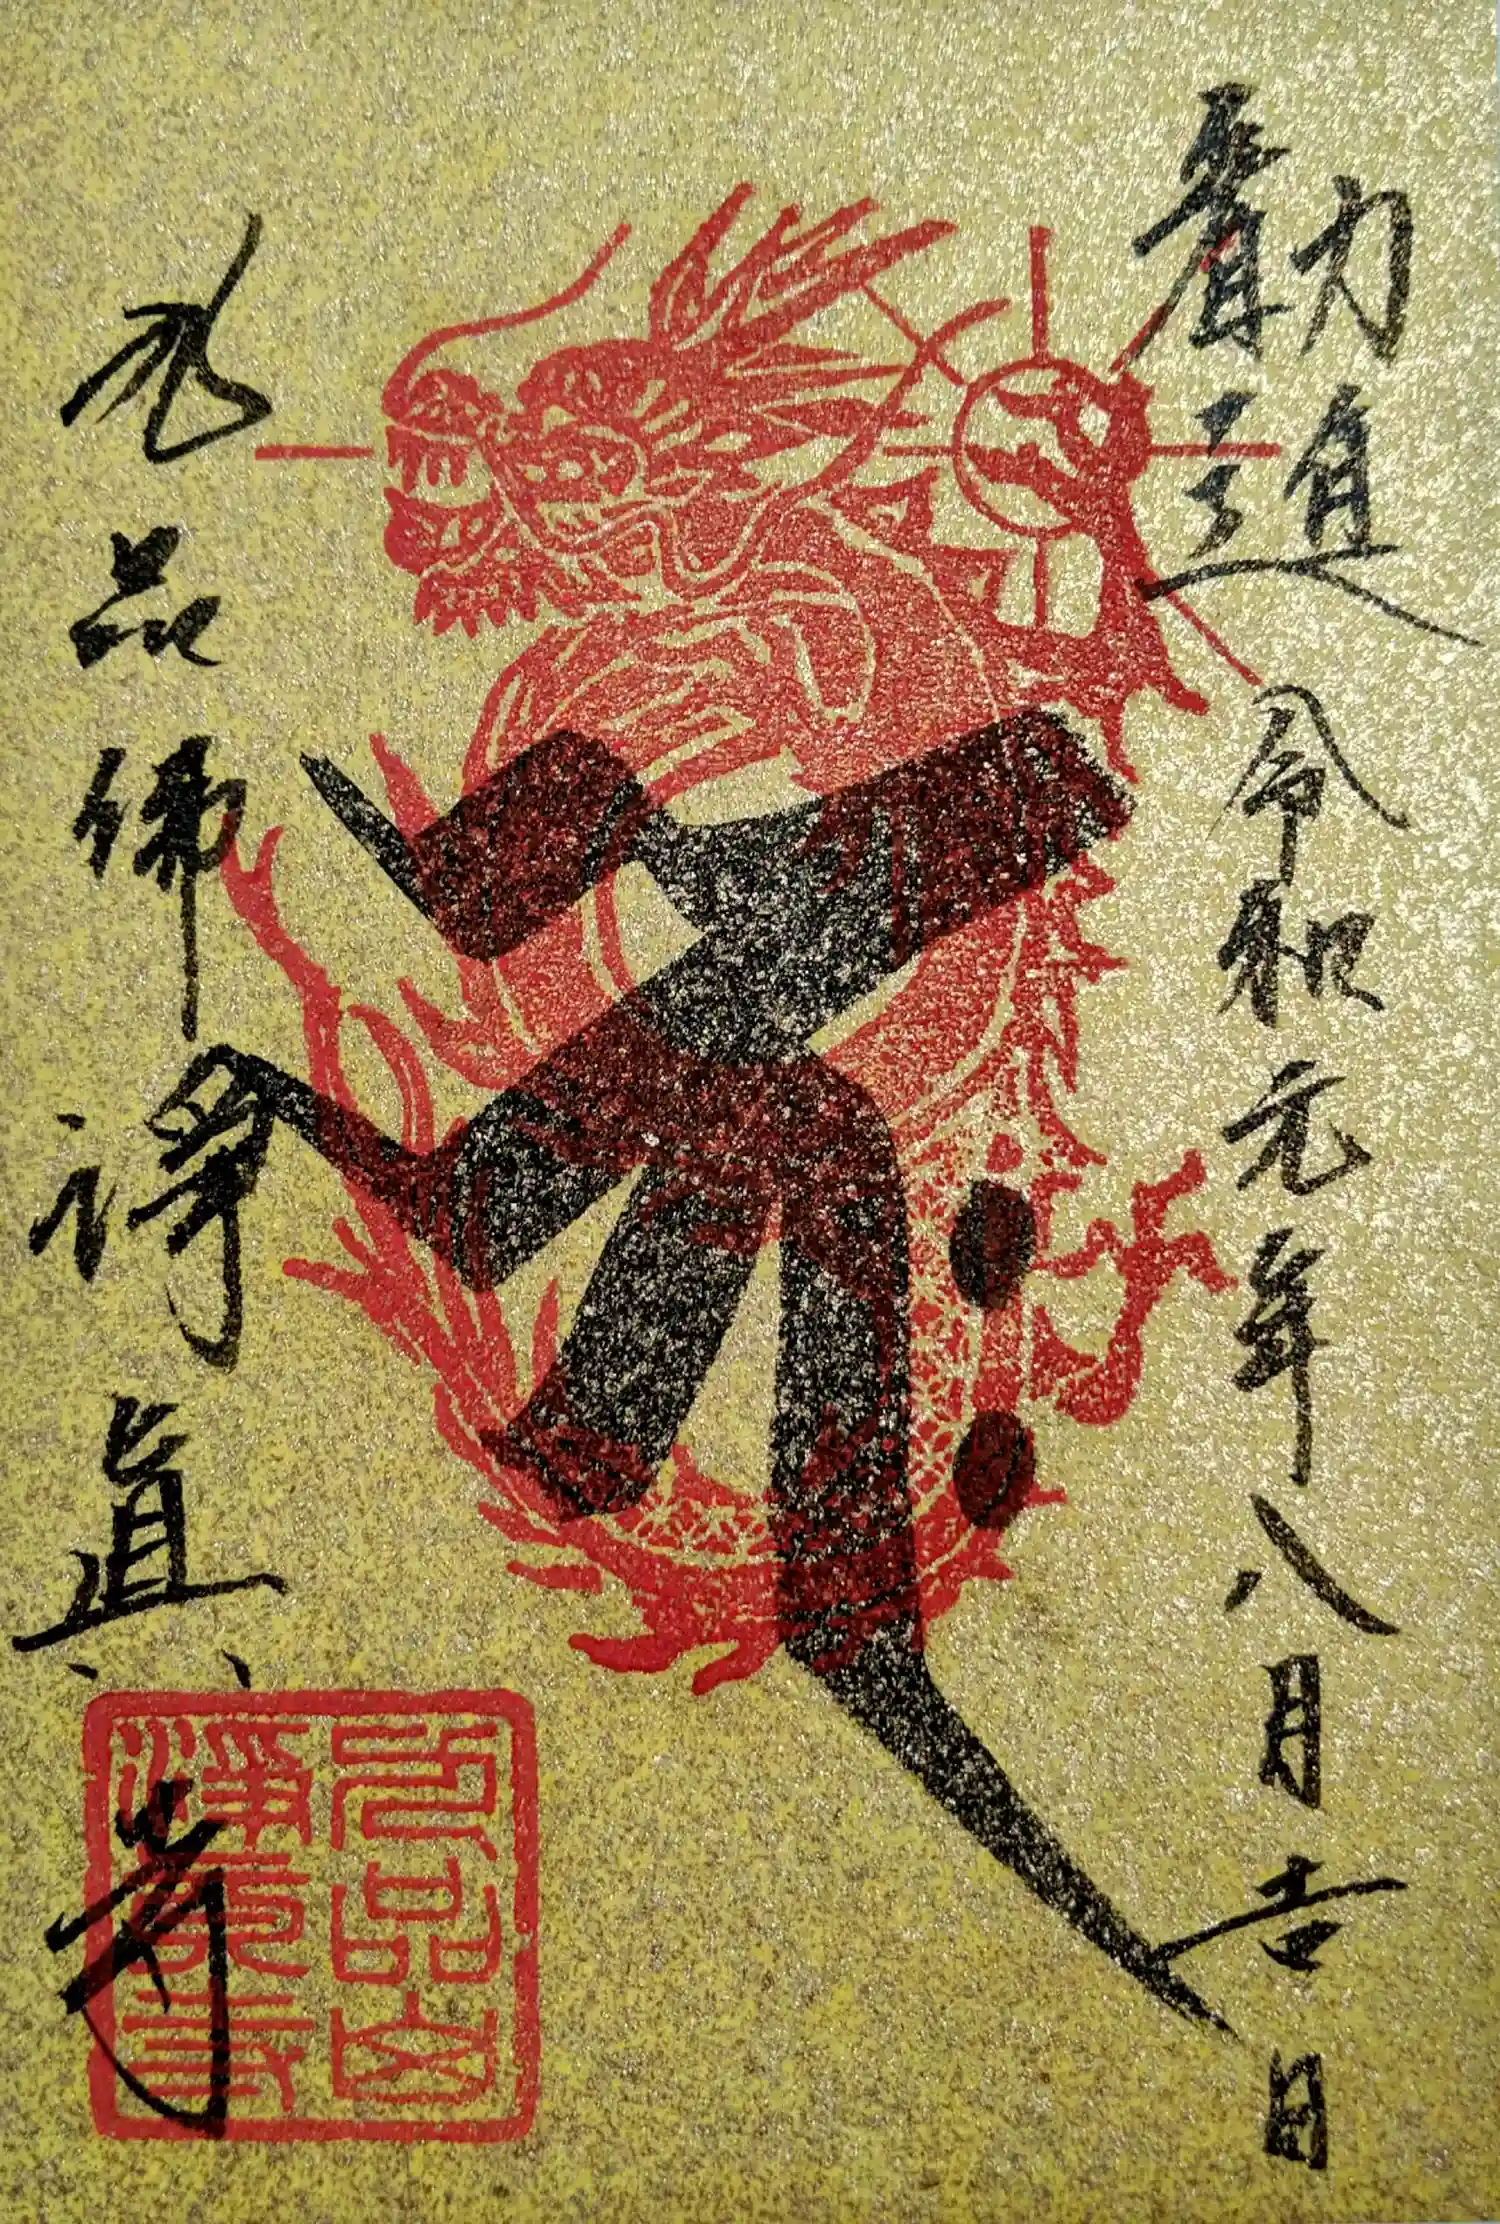 令和元年八月吉日
𑖮𑖿𑖨𑖱𑖾
九品佛淨眞寺
九品山
淨眞寺